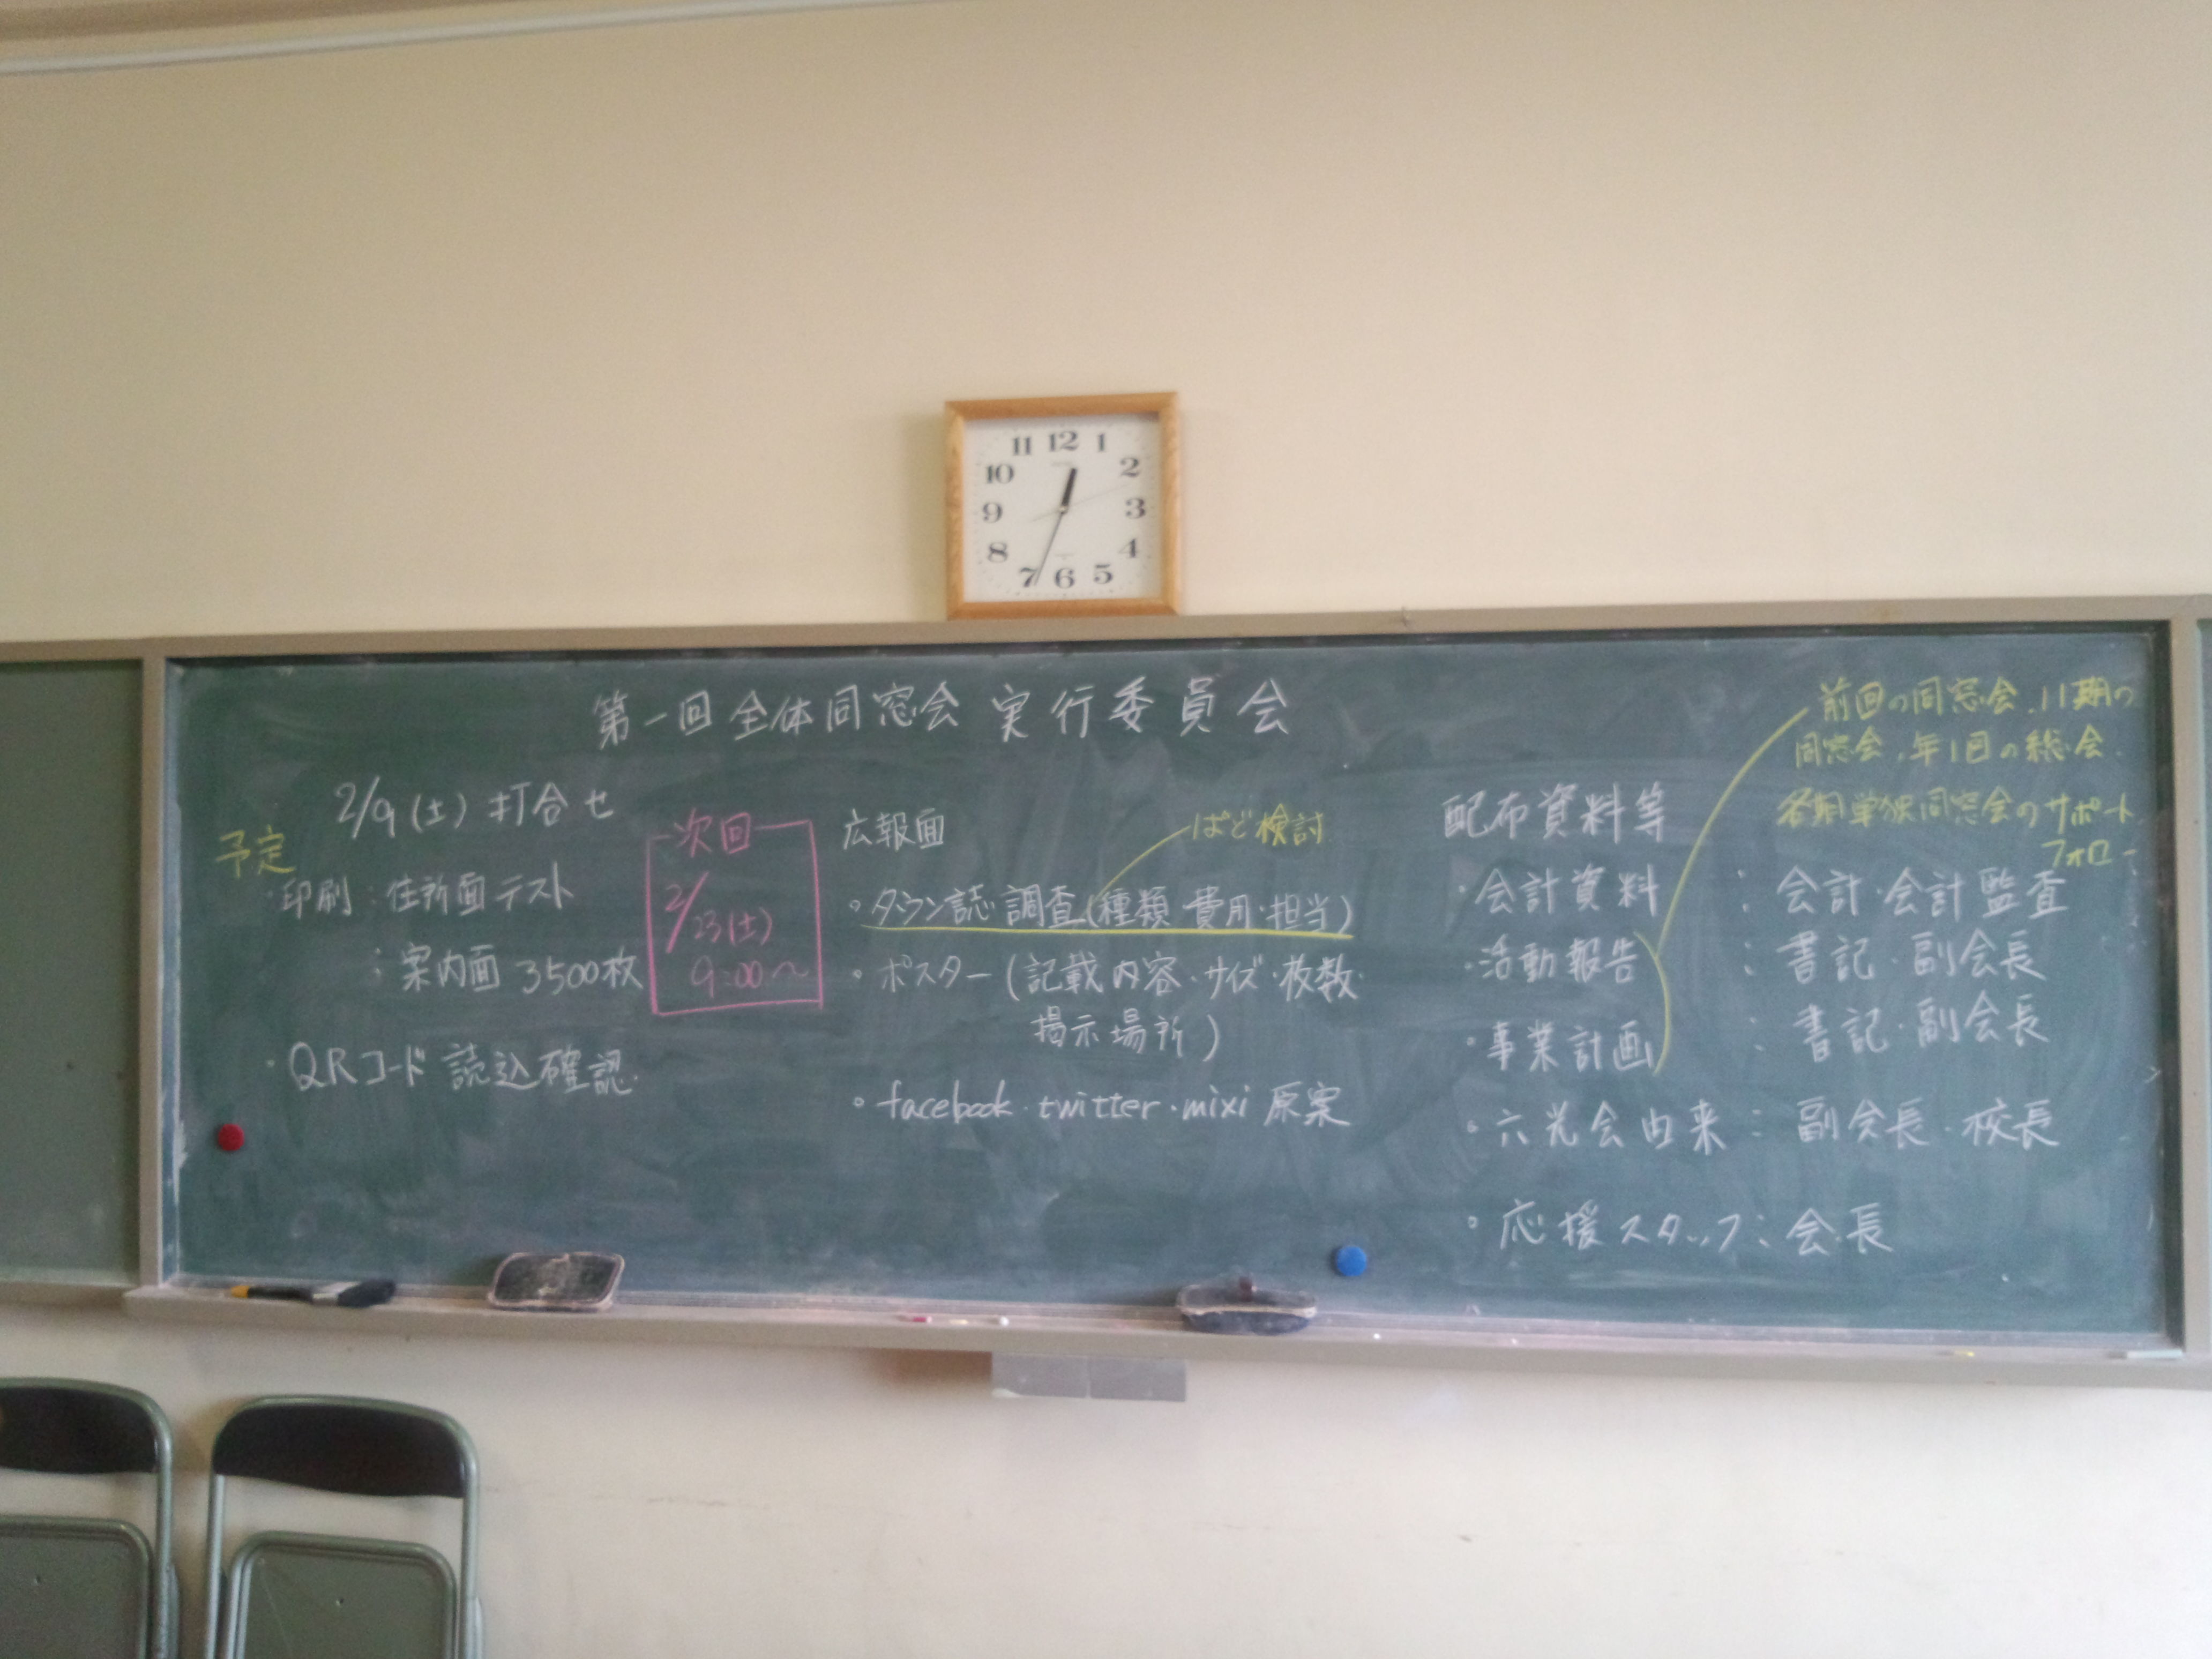 11 12 1
10 2
9 3
8 4
7 6 5
第一回全体同窓会 実行委員会
2/9(土)打合せ
予定
・印刷:住所面テスト
:案内面 3500枚
・QRコード読込確認
次回
2/23(土)
9:00~
広報面
ぱど検討
・タウン誌調査(種類・費用・担当)
・ポスター(記載内容・サイズ・枚数・
掲示場所)
・facebook・twitter・mixi原案
前回の同窓会、11期の
同窓会、年1回の総会.
各期単独同窓会のサポート
フォロー
配布資料等
・会計資料 : 会計・会計監査
・活動報告 : 書記・副会長
・事業計画 : 書記・副会長
・六光会由来 : 副会長・校長
・応援スタッフ:会長